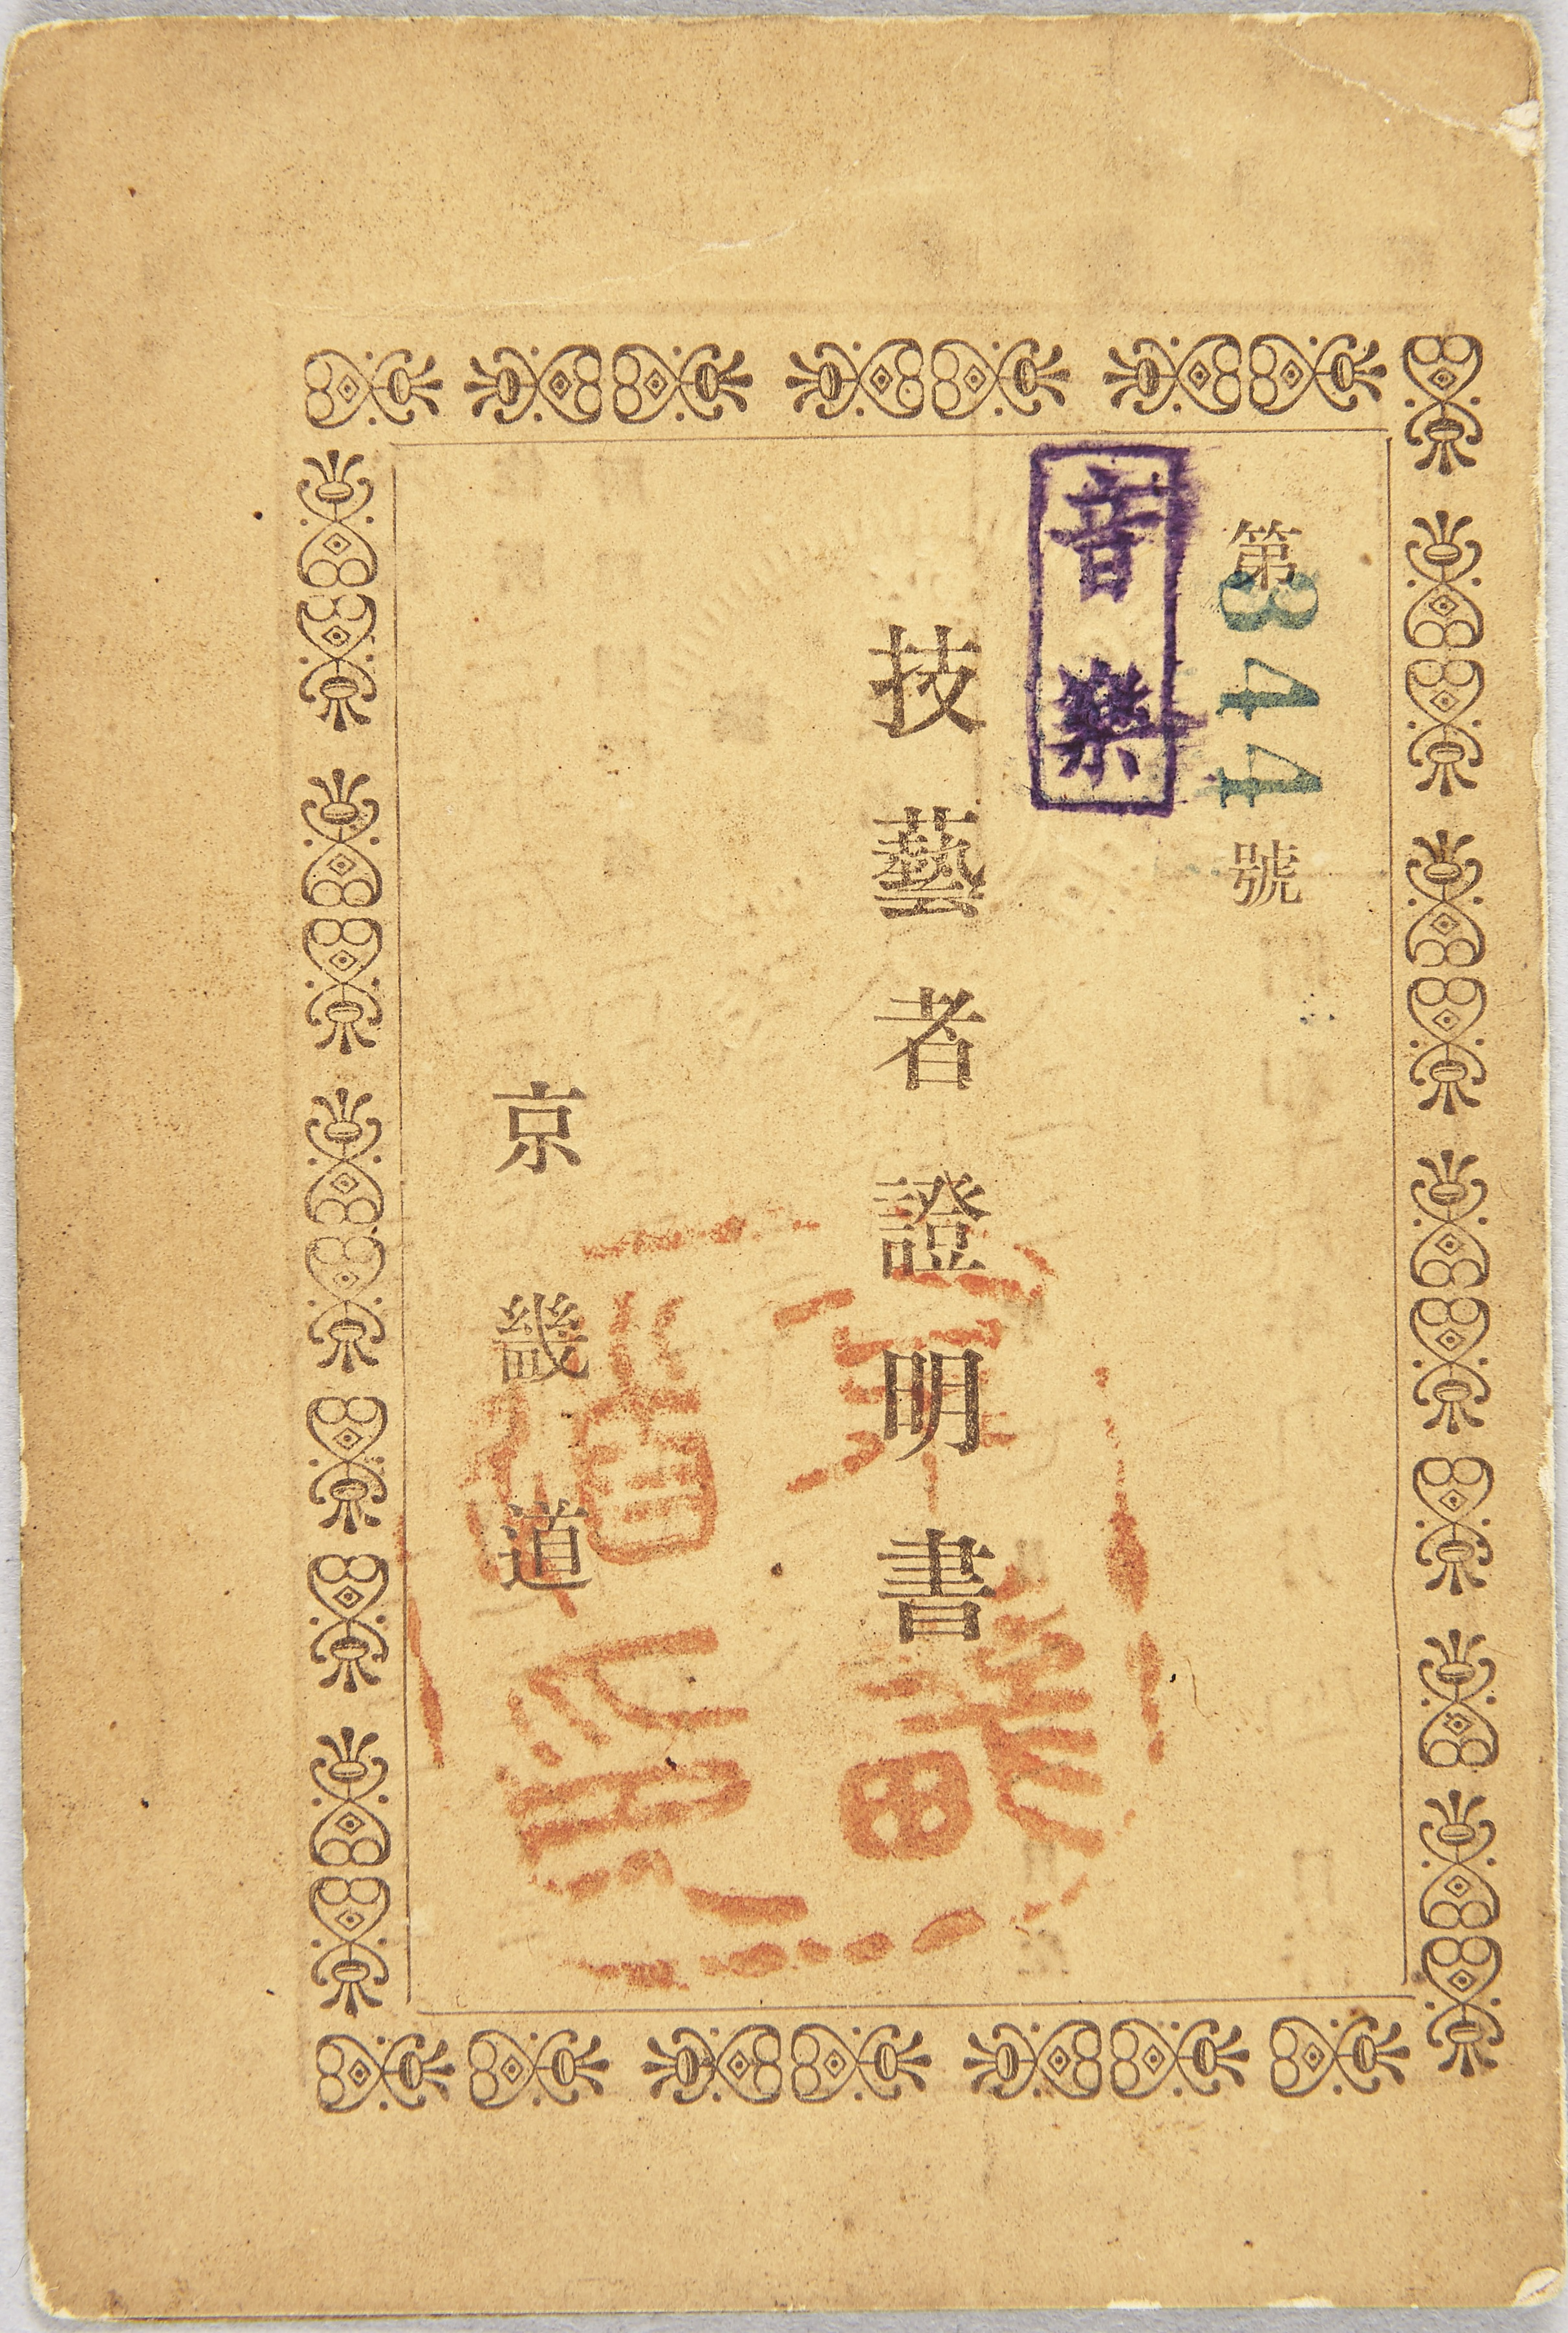 第344號
音樂
技藝者證明書
京畿道